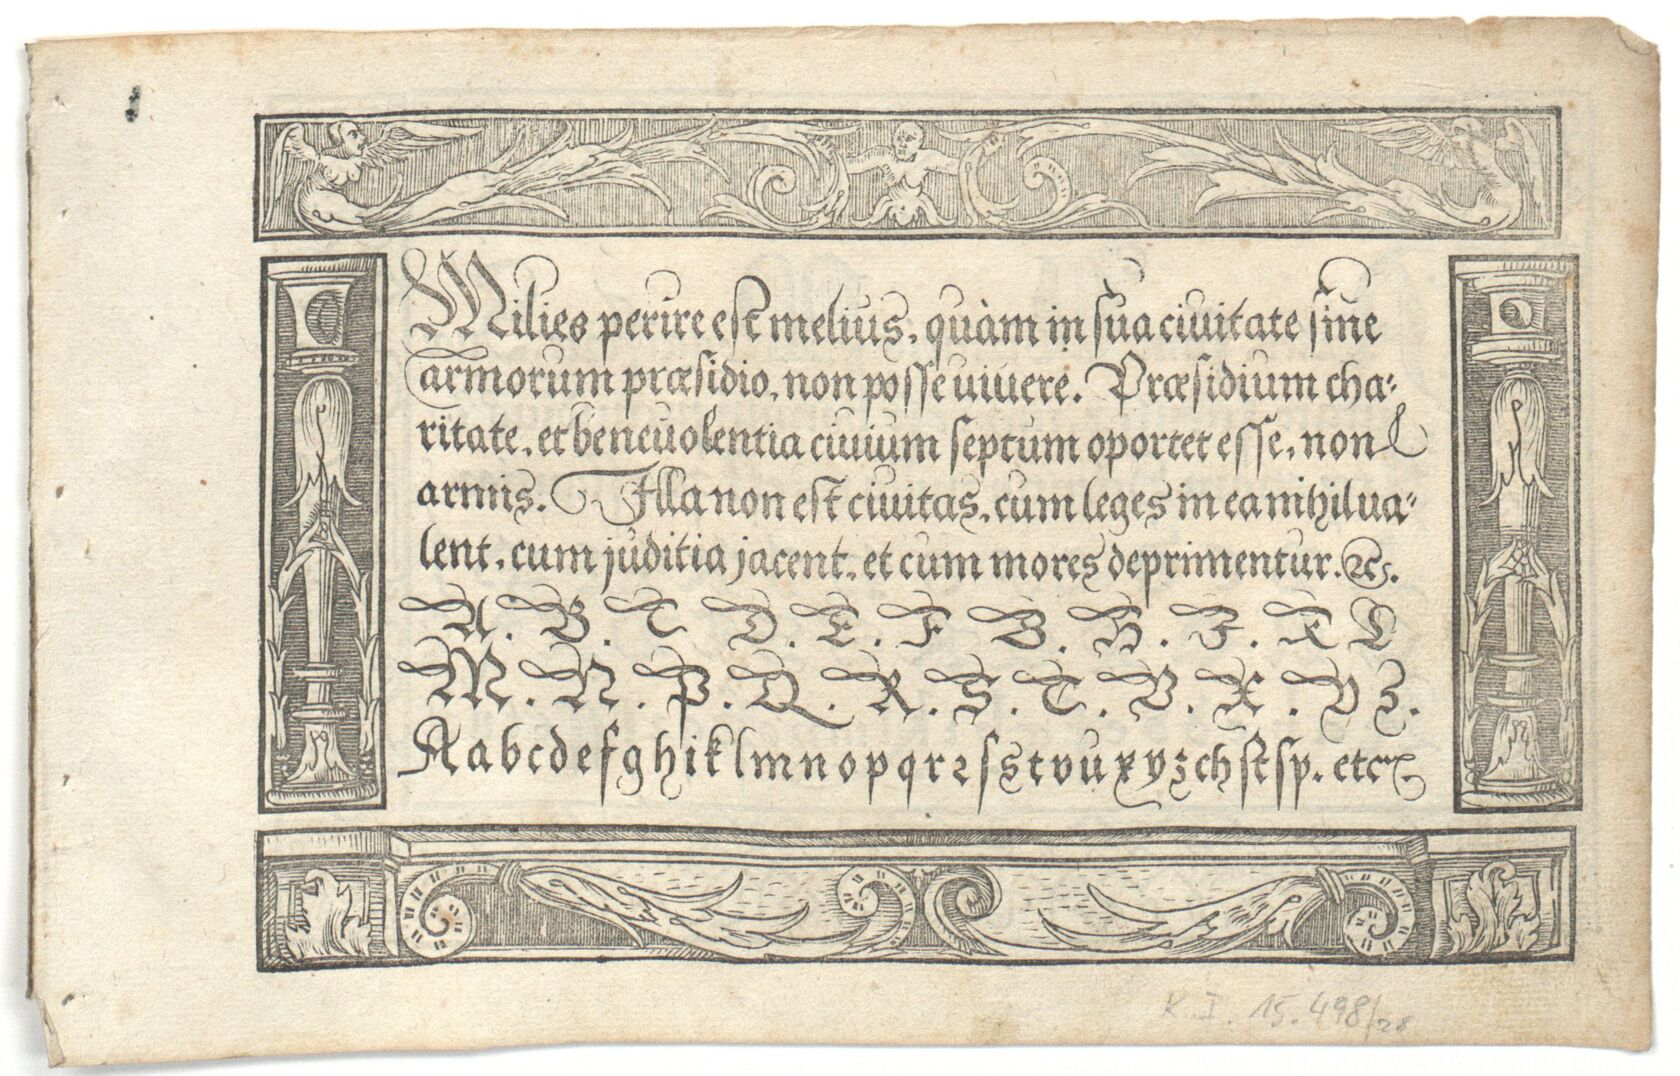 Milies perire est melius, quàm in sua ciuitate sine
armorum præsidio, non posse uiuere. Præsidium cha-
ritate, et beneuolentia ciuium septum oportet esse, non
armis. Illa non est ciuitas, cum leges in ea nihil ua-
lent, cum juditia jacent, et cum mores deprimentur. &c.
A. B. C D. E. F G. H. I. K L
M. N. P. Q. R. S. T. V. X. Y Z.
A a b c d e f g h i k l m n o p q r ꝛ ſ s t v u x y z ch st sp. etc
K.I. 15.498/28